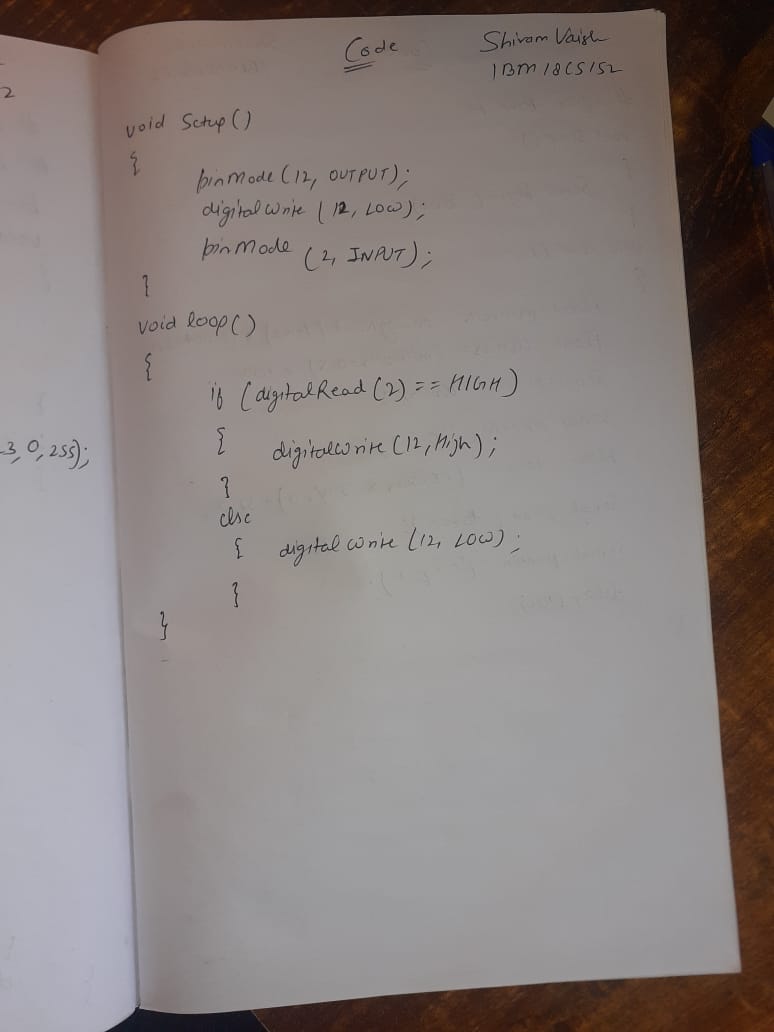 2
-3, 0, 255);
Code
Shivam Vaish
1BM18CS152
void Setup()
{
pinMode (12, OUTPUT);
digitalWrite (12, LOW);
pinMode (2, INPUT);
}
void loop()
{
if (digitalRead (2) == HIGH)
{ digitalwrite (12, High);
}
else
{ digitalwrite (12, LOW);
}
}